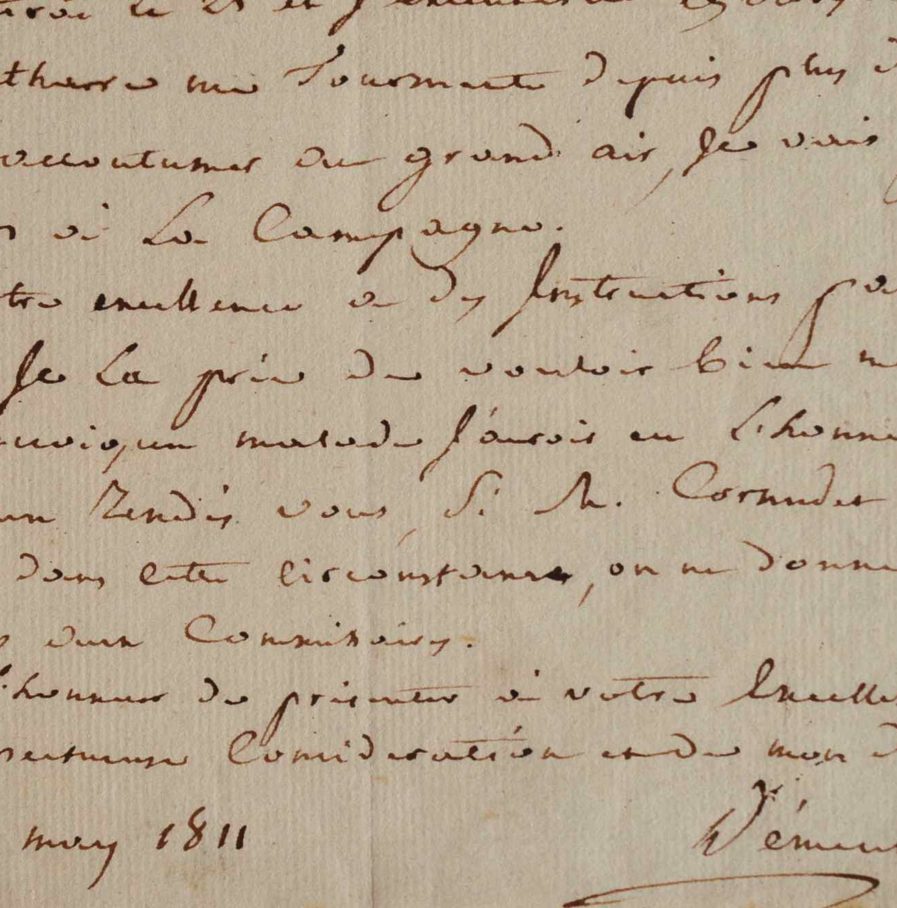 le 25 et
me Tourmente depuis plus
accoutumer au grand air, Je vais
à La Campagne.
tre excellence a des Instructions
Je La prie de vouloir bien
quoique malade J'aurois eu L'honne
un Rendés vous, Si M. Cornudet
dans cette circonstance, on ne donne
aux Commissaires.
L'honneur de présenter à votre Excelle
Considération et de mon
may 1811